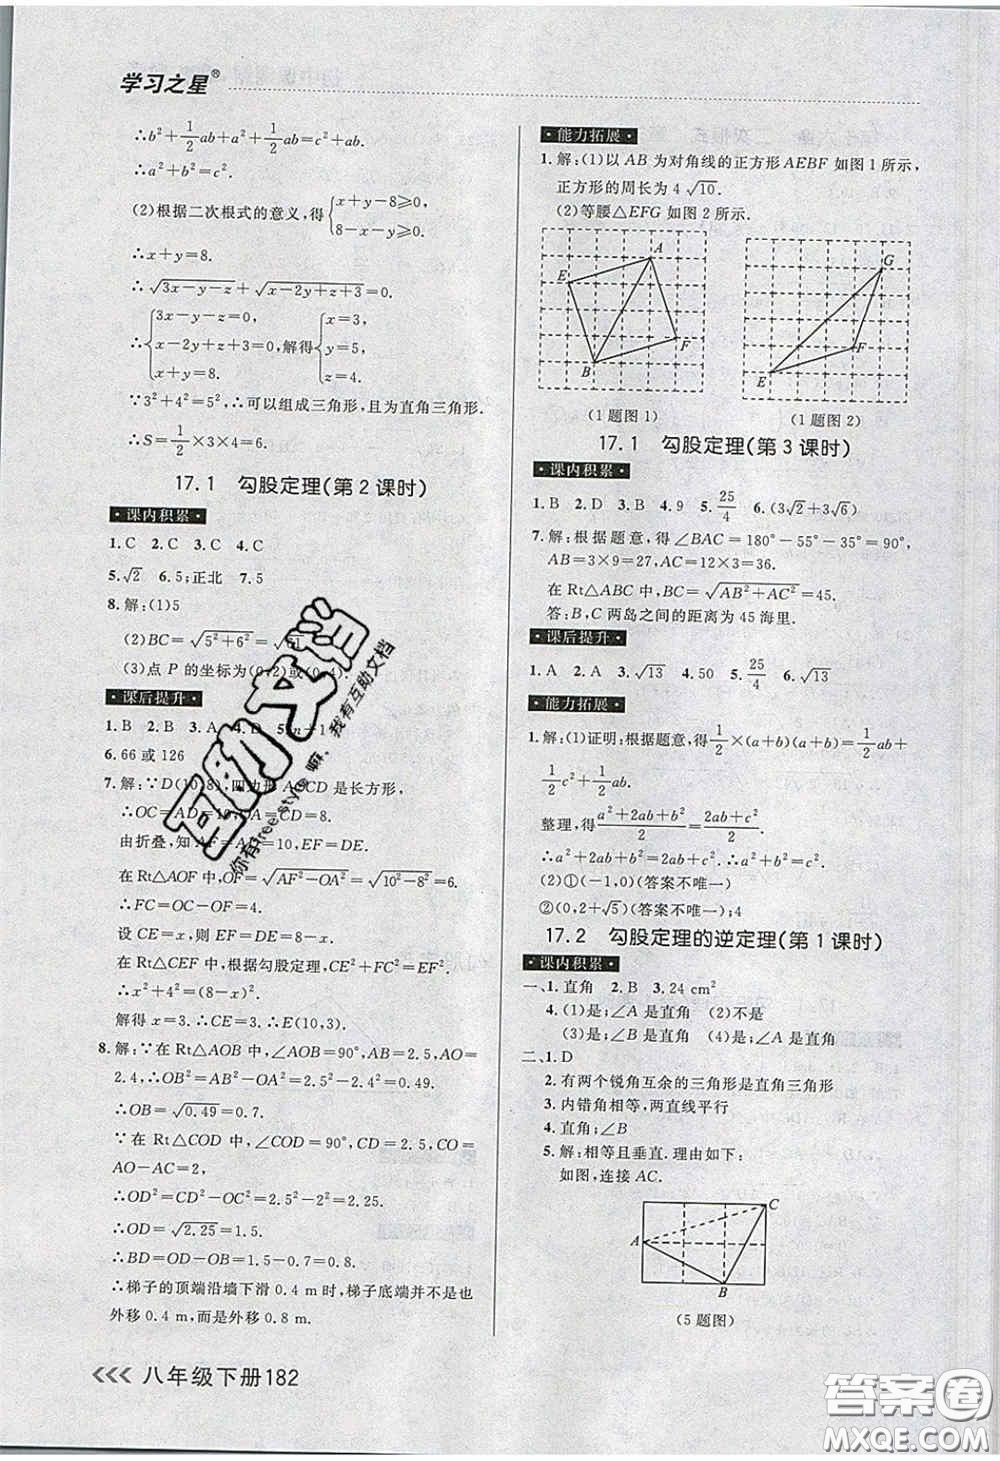 学习之星®
∴b²+1/2ab+a²+1/2ab=c²+ab.
∴a²+b²=c².
(2)根据二次根式的意义,得{x+y-8⩾0, 8-x-y⩾0.
∴x+y=8.
∴√(3x-y-z)+√(x-2y+z+3)=0.
∴{3x-y-z=0, x-2y+z+3=0, x+y=8.解得{x=3, y=5, z=4.
∵3²+4²=5²,∴可以组成三角形,且为直角三角形.
∴S=1/2×3×4=6.
17.1 勾股定理(第2课时)
·课内积累·
1.C 2.C 3.C 4.C
5.√2 6.5;正北 7.5
8.解:(1)5
(2)BC=√(5²+6²)=
(3)点 P 的坐标为(0,2)或(0,4).
·课后提升·
1.B 2.B 3.A 4.D
6.66或126
7.解:∵D(10,8),四边形AOCD是长方形,
∴OC=AD=10,AO=CD=8.
由折叠,知AF=AD=10,EF=DE.
在Rt△AOF中,OF=√(AF²-OA²)=√(10²-8²)=6.
∴FC=OC-OF=4.
设CE=x,则EF=DE=8-x.
在Rt△CEF中,根据勾股定理,CE²+FC²=EF².
∴x²+4²=(8-x)².
解得x=3.∴CE=3.∴E(10,3).
8.解:∵在Rt△AOB中,∠AOB=90°,AB=2.5,AO=
2.4,∴OB²=AB²-OA²=2.5²-2.4²=0.49.
∴OB=√0.49=0.7.
∵在Rt△COD中,∠COD=90°,CD=2.5,CO=
AO-AC=2,
∴OD²=CD²-OC²=2.5²-2²=2.25.
∴OD=√2.25=1.5.
∴BD=OD-OB=1.5-0.7=0.8.
∴梯子的顶端沿墙下滑0.4 m时,梯子底端并不是也
外移0.4 m,而是外移0.8 m.
·能力拓展·
1.解:(1)以AB为对角线的正方形AEBF如图1所示,
正方形的周长为4√10.
(2)等腰△EFG如图2所示.
A
E
F
B
G
F
E
(1题图1)
(1题图2)
17.1 勾股定理(第3课时)
·课内积累·
1.B 2.D 3.B 4.9 5.25/4 6.(3√2+3√6)
7.解:根据题意,得∠BAC=180°-55°-35°=90°,
AB=3×9=27,AC=12×3=36.
在Rt△ABC中,BC=√(AB²+AC²)=45.
答:B,C两岛之间的距离为45海里.
·课后提升·
1.A 2.A 3.√13 4.50 5.25/4 6.√13
·能力拓展·
1.解:(1)证明:根据题意,得1/2×(a+b)(a+b)=1/2ab+
1/2c²+1/2ab.
整理,得(a²+2ab+b²)/2=(2ab+c²)/2.
∴a²+2ab+b²=2ab+c².
∴a²+b²=c².
(2)①(-1,0)(答案不唯一)
②(0,2+√5)(答案不唯一);4
17.2 勾股定理的逆定理(第1课时)
·课内积累·
一、1.直角 2.B 3.24 cm²
4.(1)是;∠A是直角 (2)不是
(3)是;∠B是直角 (4)是;∠A是直角
二、1.D
2.有两个锐角互余的三角形是直角三角形
3.内错角相等,两直线平行
4.直角;∠B
5.解:相等且垂直.理由如下:
如图,连接AC.
C
A
B
(5题图)
八年级下册182
互助文档
你有free style嘛,我有互助文档
答案圈
MXQE.COM